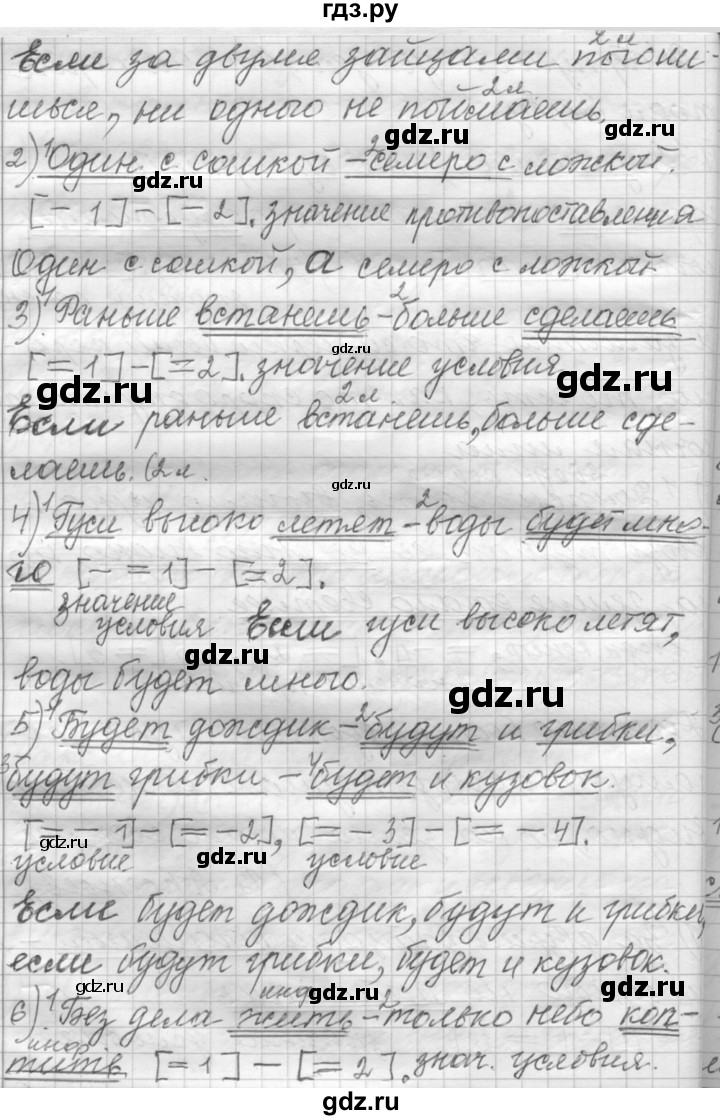 гдз.ру
Если за двумя зайцами погони-
шься, ни одного не поймаешь.
2) Один с сошкой – семеро с ложкой.
[– 1] – [– 2]. значение противопоставления
Один с сошкой, а семеро с ложкой
3) Раньше встанешь – больше сделаешь
[= 1] – [= 2]. значение условия
Если раньше встанешь, больше сде-
лаешь. (2 л.
4) Гуси высоко летят – воды будет мно-
го [– = 1] – [= 2].
значение
условия Если гуси высоко летят,
воды будет много.
5) Будет дождик – будут и грибки,
будут грибки – будет и кузовок.
[= – 1] – [= – 2], [= – 3] – [= – 4].
условие условие
Если будет дождик, будут и грибки,
если будут грибки, будет и кузовок.
6) Без дела жить – только небо коп-
тить [= 1] – [= 2]. знач. условия.
gdz.ru